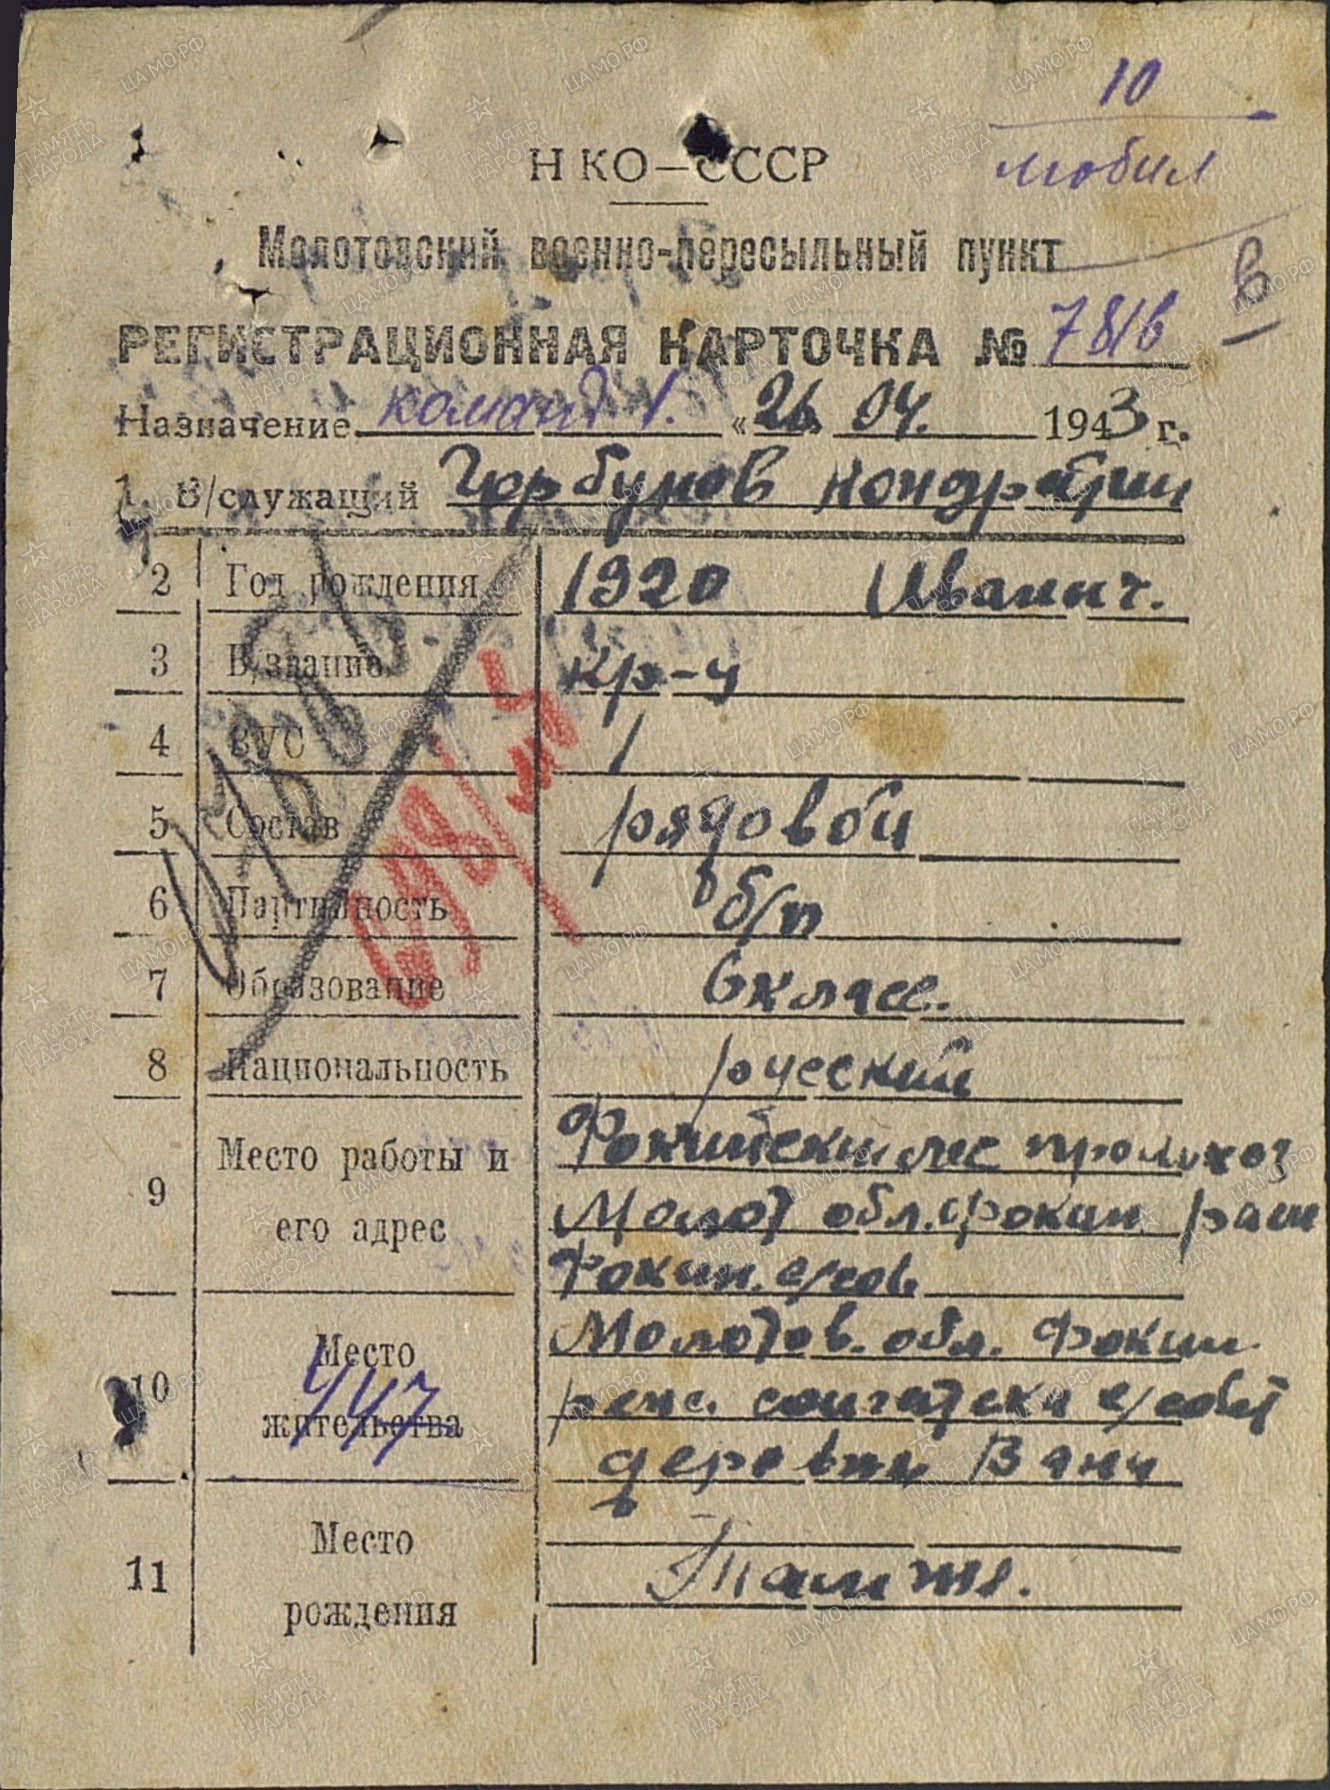 10
мобил
НКО—СССР
Молотовский военно-пересыльный пункт
в
РЕГИСТРАЦИОННАЯ КАРТОЧКА № 7816
Назначение команд 1. «26 04. 1943 г.
1. В/служащий Горбунов Кондратий
2 Год рождения 1920 Иванич.
3 В/звание Кр-ц
4 ВУС 1
5 Состав рядовой
6 Партийность б/п
7 Образование 6 класс.
8 Национальность русский
9 Место работы и его адрес Фокинский леспромхоз
Молот обл. Фокин
Фокин. с/сов
10 Место жительства Молотов. обл. Фокин
с/совет
деревня Вани
447
11 Место рождения Там же.